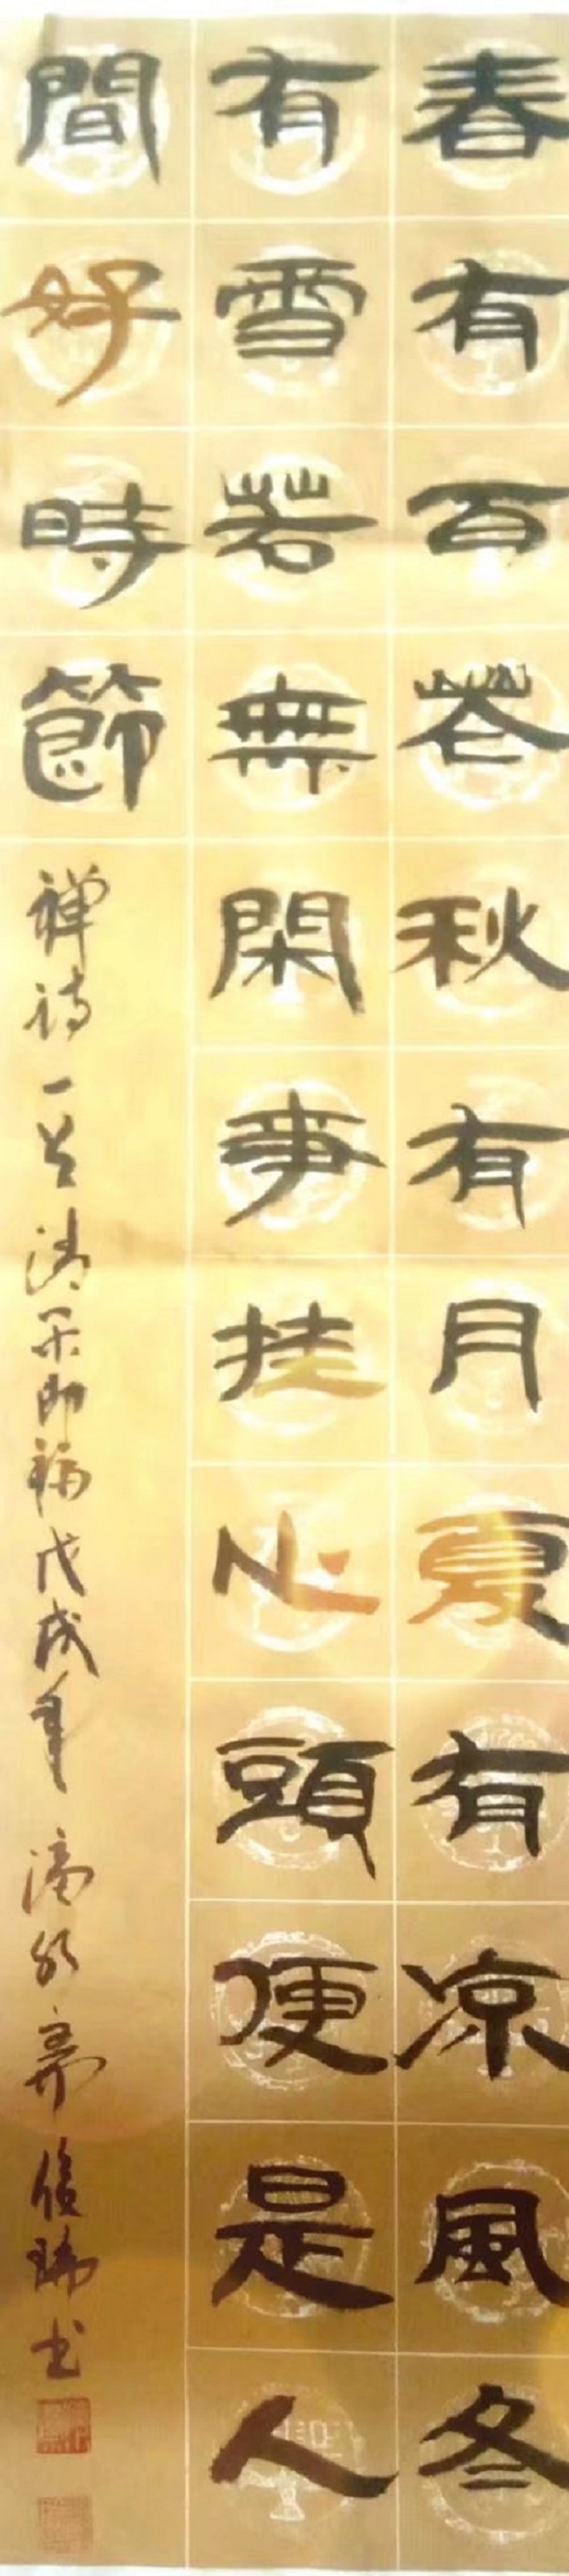 春有百花秋有月夏有凉風冬
有雪若無閑事挂心頭便是人
間好時節
禅詩一首清平即福戊戌年
書